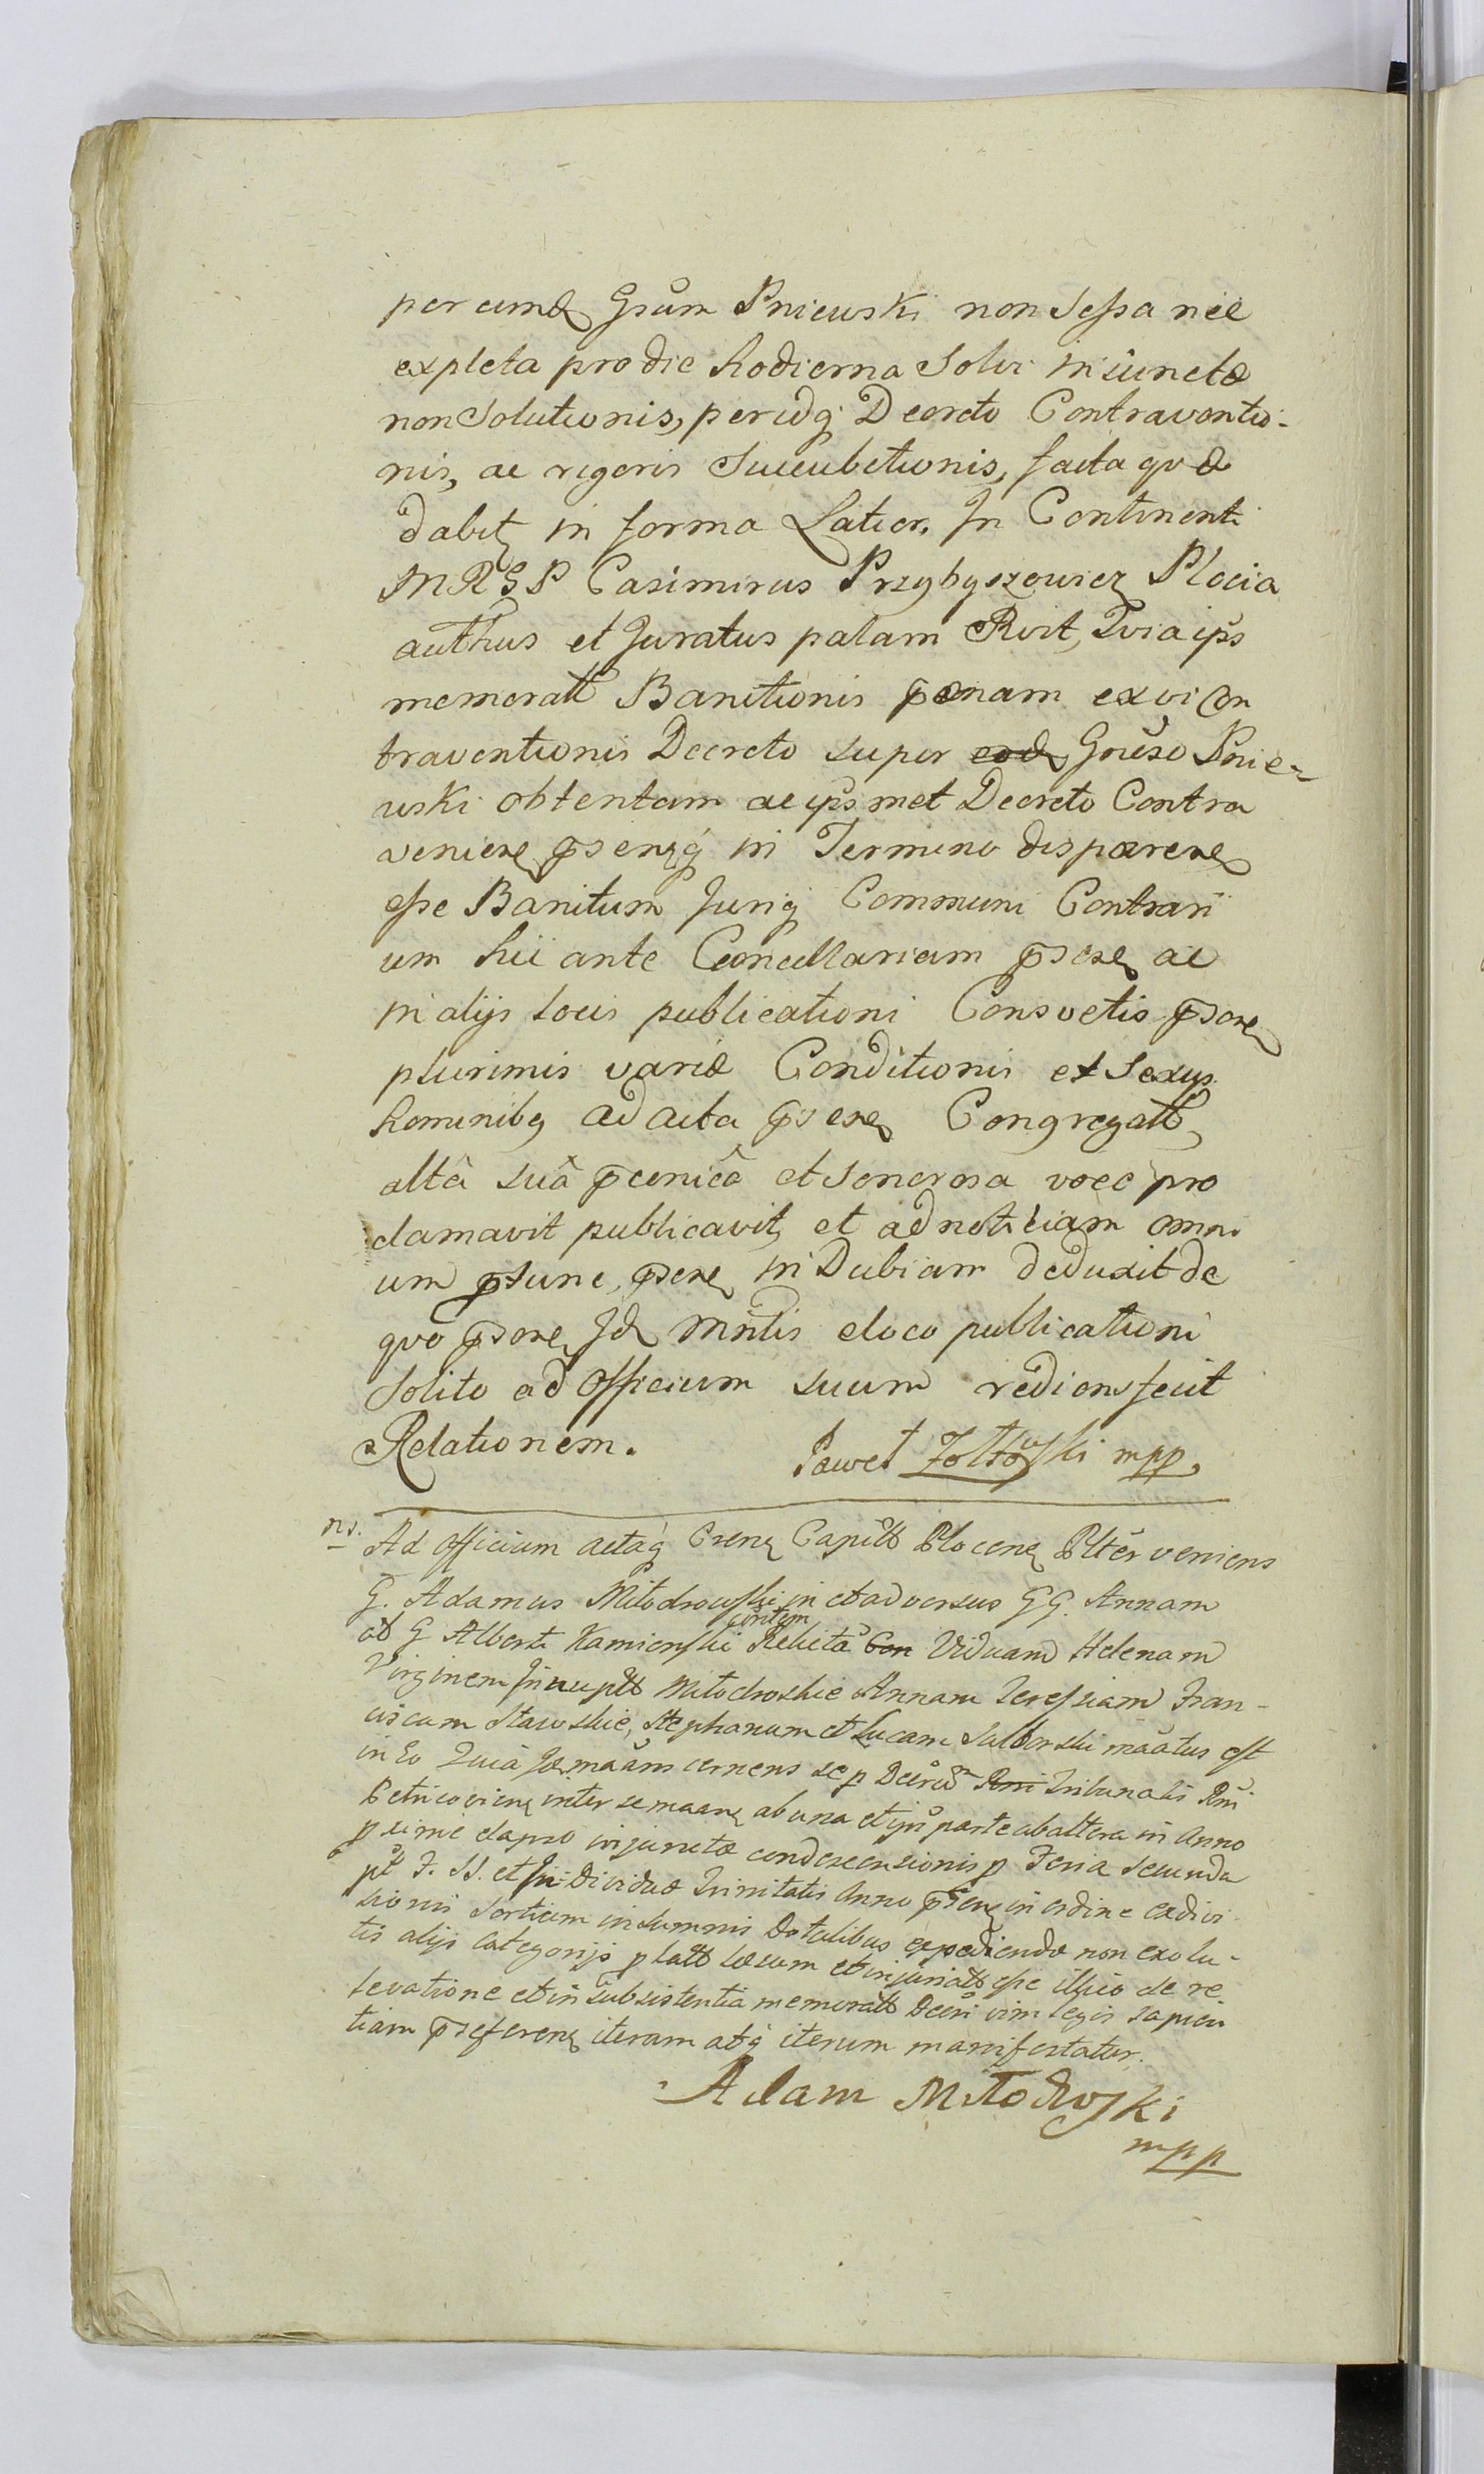 per eund Gsum Pniewski non Sessa nec
expleta pro die hodierna Solvi iniunctæ
non Solutionis, per idq Decreto Contraventio-
nis, ac rigoris Succubitionis, facta quæ
dabit in forma Latior. In Continenti
MRGP Casimirus Przybyszewicz Plocia
authus et Juratus palam Rvit, Quia ips
memoratt Banitionis pænam ex vi Con
traventionis Decreto super eod Gnŭso Pnie-
wski obtentam ac ips met Decreto Contra
venien psenq in Termino disparen
esse Banitum Juriq Communi Contrari
um hic ante Cancellariam psen ac
in alijs locis publicationi Consvetis psen
plurimis variæ Conditionis et Sexus
hominibq ad acta psen Congregatt
altâ suâ pconicâ et sonorosa voce pro
clamavit publicavit, et ad notitiam omni
um psune, psen in Dubiam deduxit de
quo psen Id Mnlis e loco publicationi
Solito ad Officium suum rediens fecit
Relationem. Paweł Żołtowski mpp.
ns. Ad Officium actaq Csen Capitt Plocen Pltēr veniens
G. Adamus Miłodrowski in et adversus GG. Annam
ol G Alberti Kamienski contem Relictā Con Viduam Helenam
Virginem Innuptt Miłodroskie Annam Teressiam Fran-
ciscam Stawskie, Stephanum et Lucam Sulborski maātus est
in Eo Quia Idem maāns cernens se p Decrēm Rni Tribunalis Rni
Petricovien inter se maan ab una et ips parte ab altera in Anno
p sime elapso injunctæ condescensionis p Feria Secunda
pt F. SS. et In-Dividuæ Trinitatis Anno psen in ordine exdivi-
sionis Sortium in Summis Dotalibus expediendæ non exolu-
tis alijs categorijs p latt læsum et injuriatt esse illico de re
levatione et in subsistentia memoratt Decri vim legis sapien
tiam pseferen iterum atq iterum manifestatur.
Adam Miłodroski
mpp